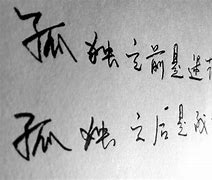 孤独之前是迷
孤独之后是成